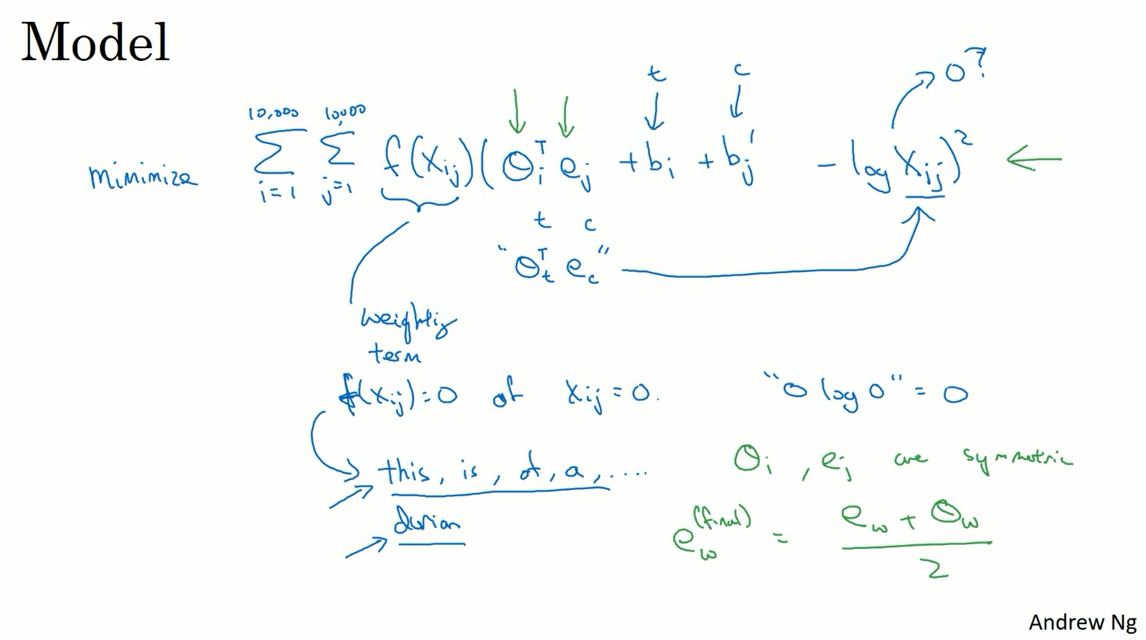 Model
t c
0?
minimize ∑_{i=1}^{10,000} ∑_{j=1}^{10,000} f(X_{ij}) (θ_i^T e_j + b_i + b_j' - log X_{ij})^2
t c
"θ_t^T e_c"
weighting
term
f(X_{ij}) = 0 if X_{ij} = 0. "0 log 0" = 0
this, is, of, a, ....
durian
θ_i, e_j are symmetric
e_w^{(final)} = \frac{e_w + θ_w}{2}
Andrew Ng